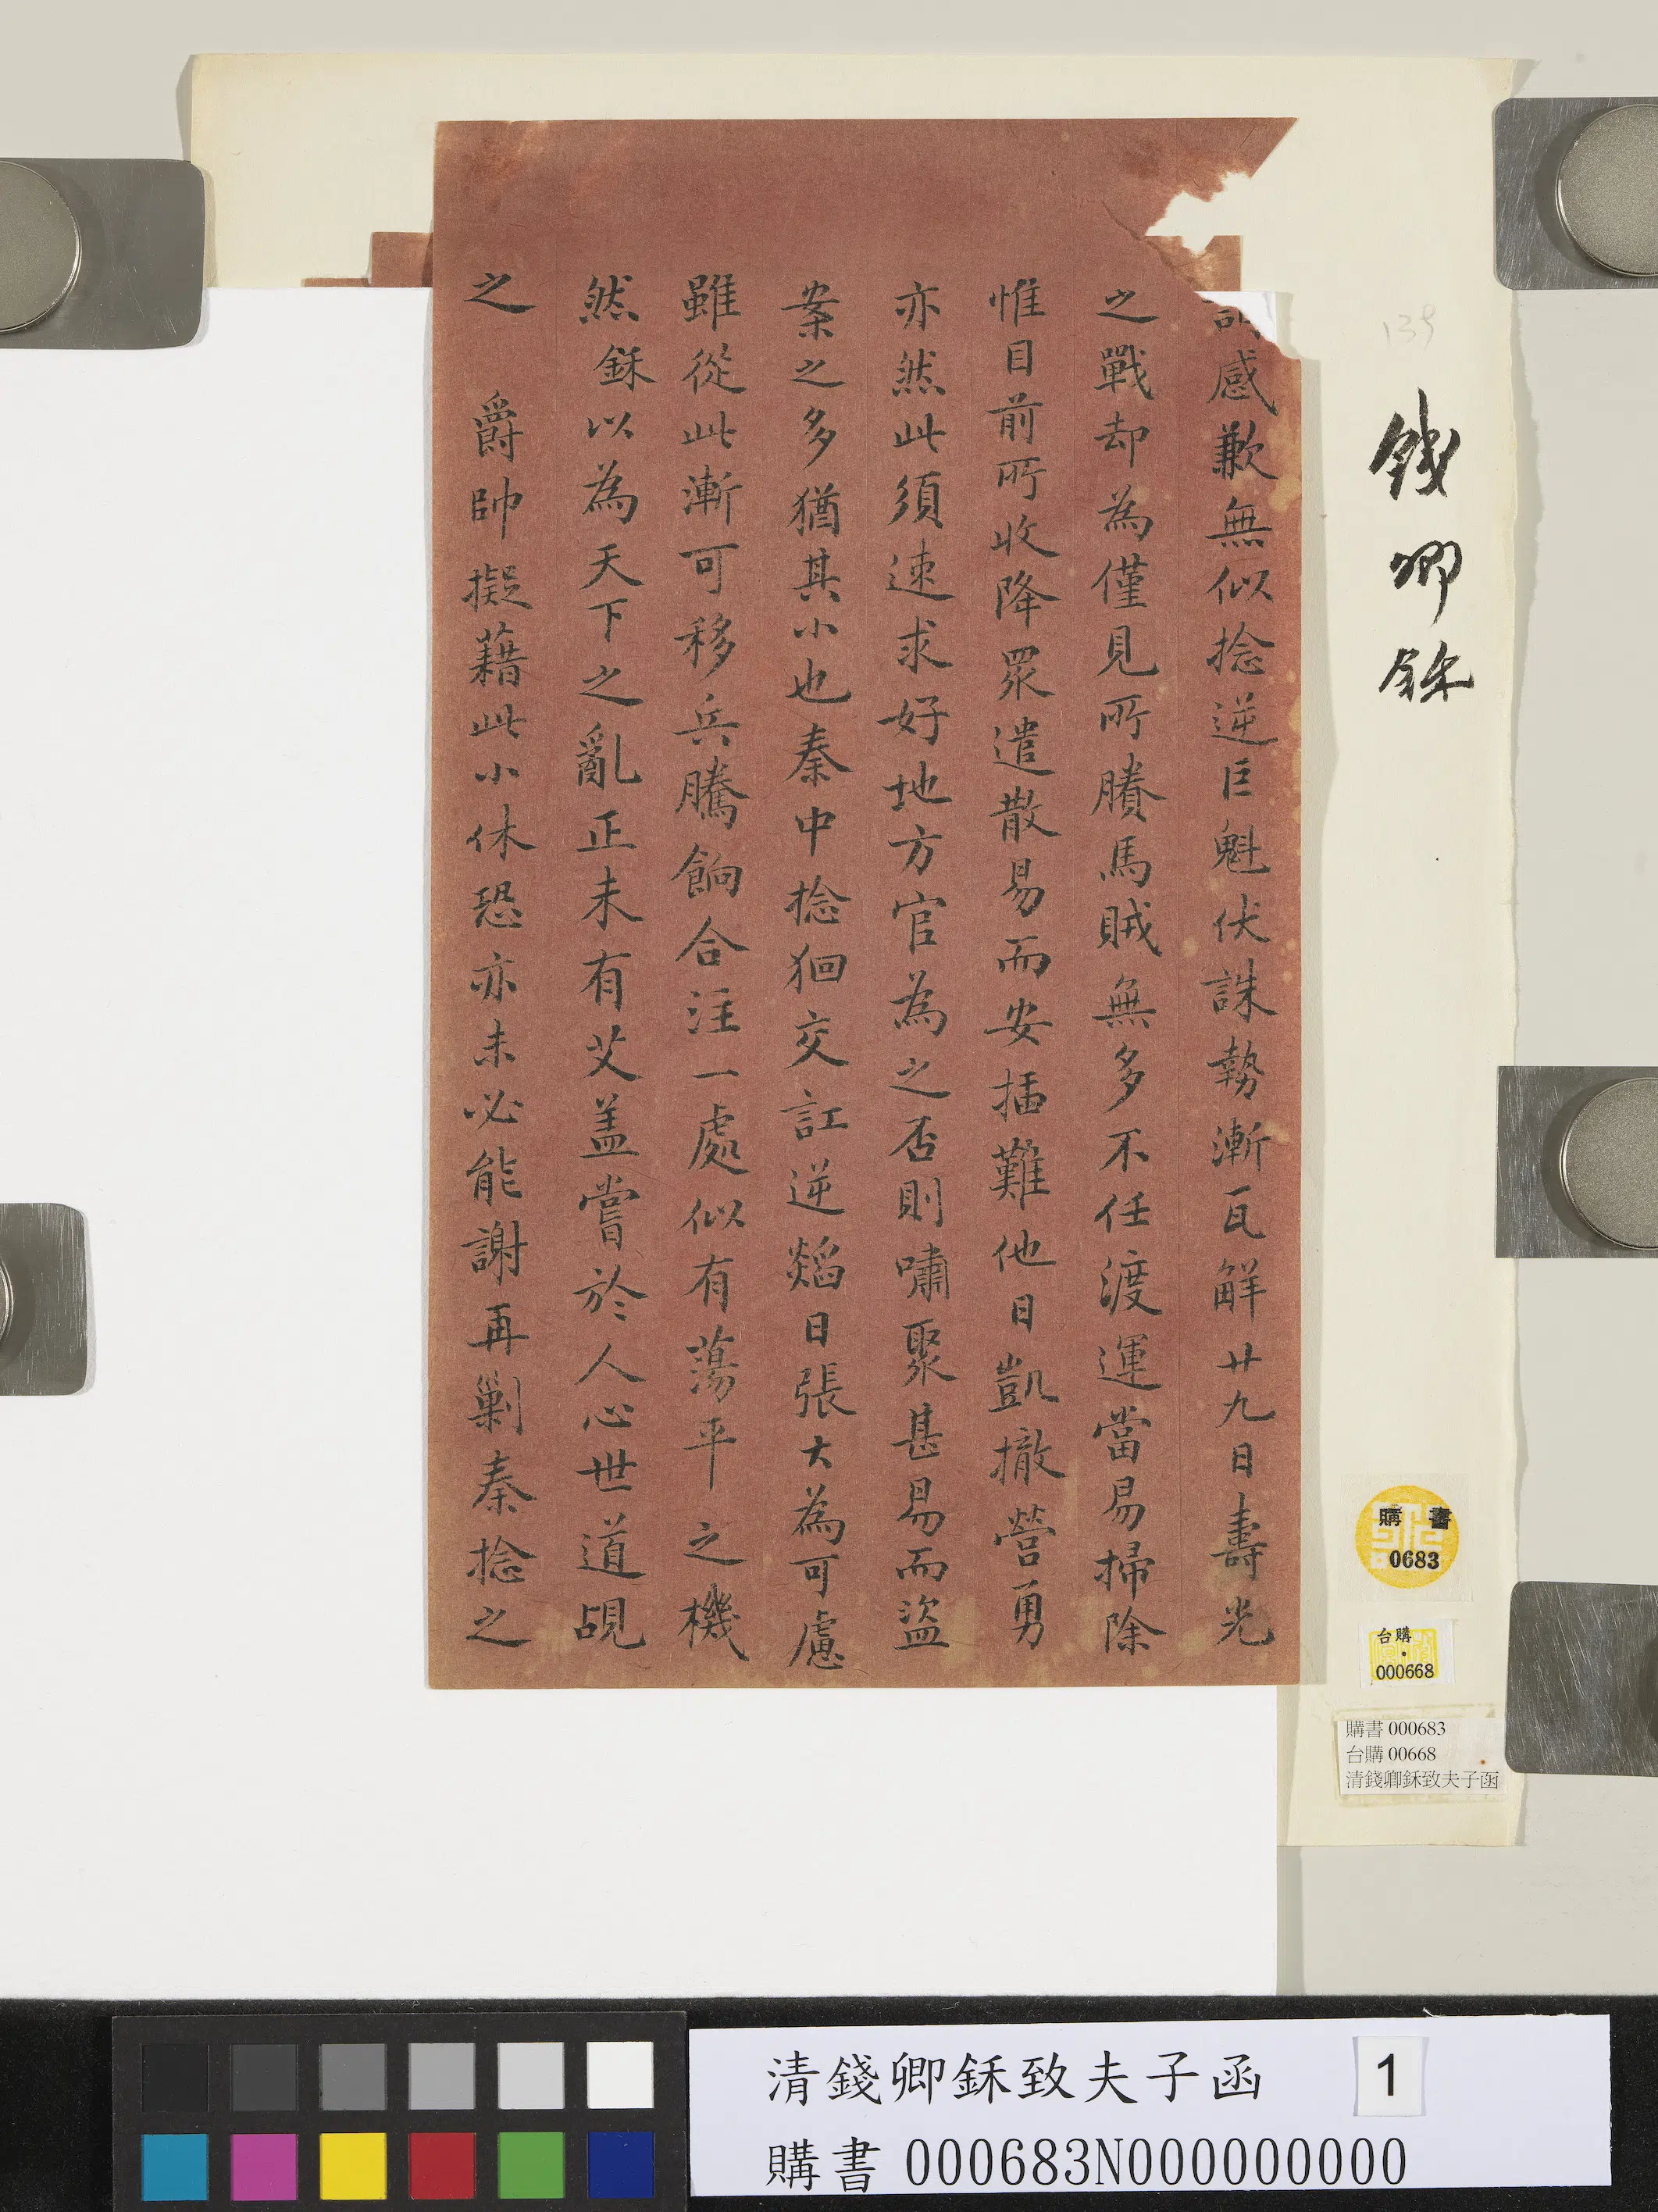 感歉無似捻逆巨魁伏誅勢漸瓦觧廿九日壽光
之戰却為僅見所賸馬賊無多不任渡運當易掃除
惟目前所收降眾遣散易而安插難他日凱撤營勇
亦然此須速求好地方官為之否則嘯聚甚易而盜
案之多猶其小也秦中捻徊交訌逆燄日張大為可慮
雖從此漸可移兵騰餉合注一處似有蕩平之機
然鉌以為天下之亂正未有艾盖嘗於人心世道覘
之 爵帥擬藉此小休恐亦未必能謝再剿秦捻之
139
錢卿鉌
購書
0683
台購
000668
購書 000683
台購 00668
清錢卿鉌致夫子函
清錢卿鉌致夫子函 1
購書 000683N000000000